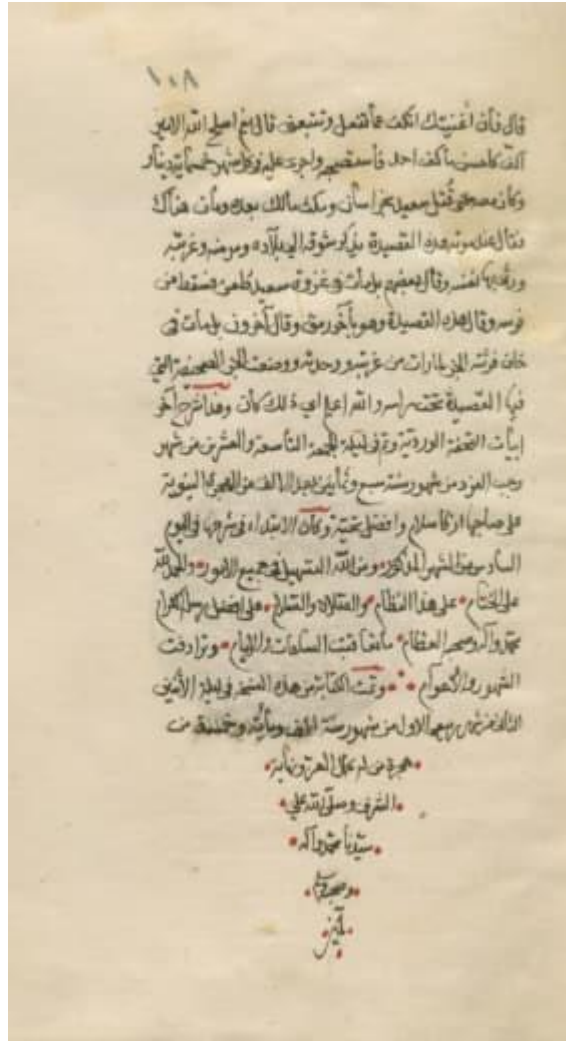 ١٠٨
قال فان اغنيتك اتكف عما تفعل وتتبعني قال نعم اصلح الله الامير
اكف كاحسن ما كف احد فاستصحبه واجرى عليه في كل شهر خمسمائة دينار
وكان معه حتى قتل سعيد بخراسان ومكث مالك بعده ومات هناك
فقال عند موته هذه القصيدة يذكر شوقه الى بلاده ومرضه وغربته
ورثى بها نفسه وقال بعضهم بل مات في غزوة سعيد طعن فسقط من
فرسه وقال هذه القصيدة وهو بآخر رمق وقال آخرون بل مات في
خان فرثته الجن لما رات من غربته ووحدته ووضعت الجن الصحيفة التي
فيها القصيدة تحت راسه والله اعلم اي ذلك كان وهذا شرح آخر
ابيات التحفة الوردية وتم في ليلة الجمعة التاسعة والعشرين من شهر
رجب الفرد من شهور سنة سبع وثمانين بعد الالف من الهجرة النبوية
على صاحبها ازكى سلام وافضل تحية وكان الابتداء في شرحها في اليوم
السادس من الشهر المذكور ومن الله التسهيل في جميع الامور والحمد لله
على الختام على هذا النظام والصلاة والسلام على افضل رسله الكرام
محمد وآله وصحبه العظام ما تعاقبت الساعات والايام وترادفت
الشهور والاعوام وتمت الكتابة من هذه النسخة في ليلة الاثنين
الثالث من شهر ربيع الاول من شهور سنة الف ومأيه وخمسة من
هجرة من له كمال العز ونهاية
الشرف وصلى الله على
سيدنا محمد وآله
وصحبه
آمين